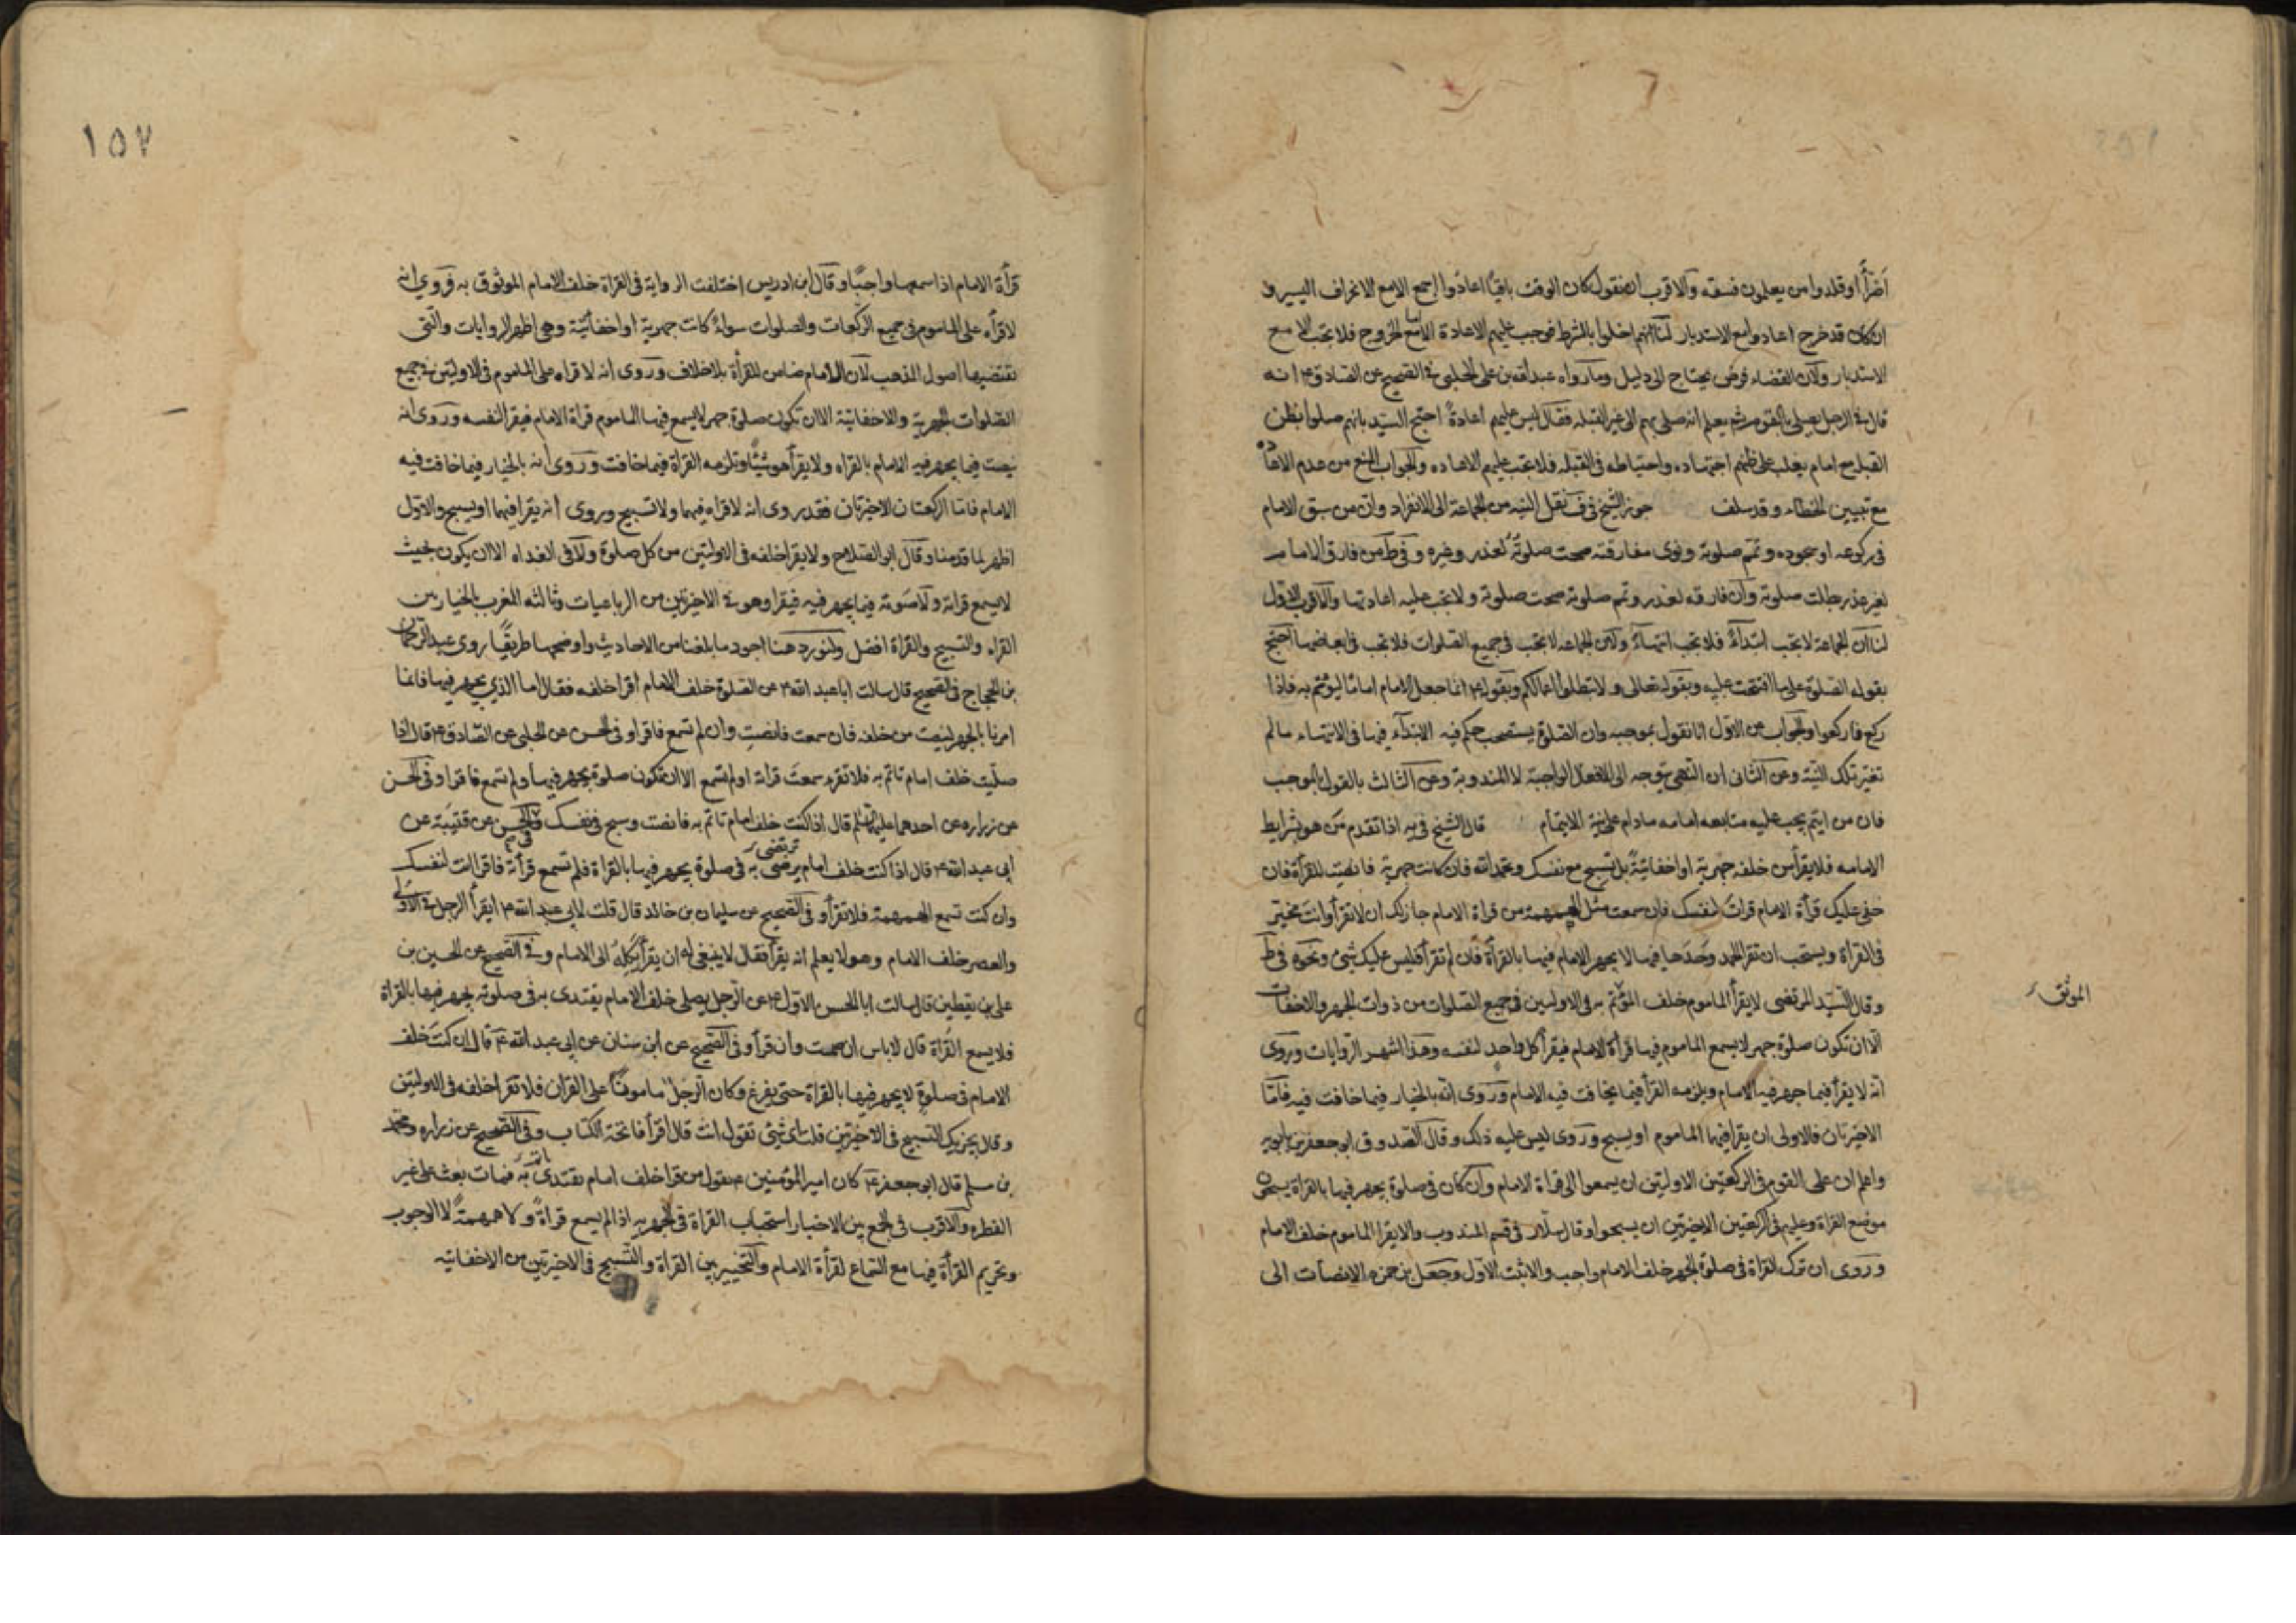 اخرا أو قلدوا من يعلمون فسقه والاقرب ان نقول كان الوقت باقيا اعادوا اجمع الامع الانحراف اليسير و
ان كان قد خرج اعادوا مع الاستدبار لنا انهم اخلوا بالشرط فوجب عليهم الاعادة اما مع الخروج فلا تجب الا مع
الاستدبار ولان القضاء فرض يحتاج الى دليل وما رواه عبد الله بن على الحلبى فى الصحيح عن الصادق ع انه
قال فى الرجل يصلى بالقوم ثم يعلم انه صلى بهم الى غير القبله فقال ليس عليهم اعادة احتج السيد بانهم صلوا بظن
القبله مع امام يغلب على ظنهم اجتهاده واحتياطه فى القبله فلا تجب عليهم الاعاده والجواب المنع من عدم الاعاده
مع تبيين الخطاء وقد سلف جوز الشيخ فى ف نقل النيه من الجماعة الى الانفراد وان من سبق الامام
فى ركوعه او سجوده وتمم صلوته ونوى مفارقته صحت صلوته لعذر وغيره وفى ط من فارق الامام
لغير عذر بطلت صلوته وان فارقه لعذر وتمم صلوته صحت صلوته ولا تجب عليه اعادتها والاقرب الاول
لنا ان الجماعة لا تجب ابتداءً فلا تجب انتهاءً ولان الجماعه لا تجب فى جميع الصلوات فلا تجب فى ابعاضها احتج
بقوله الصلوة على ما افتتحت عليه وبقوله تعالى ولا تبطلوا اعمالكم وبقوله ع انما جعل الامام اماما ليؤتم به فاذا
ركع فاركعوا والجواب عن الاول انا نقول بموجبه وان الصلوة يستصحب حكم فيه الابتداء فيها فى الانتهاء ما لم
تغير تلك النية وعن الثانى ان النهى يتوجه الى الافعال الواجبة لا المندوبة وعن الثالث بالقول بالموجب
فان من ايتم يجب عليه متابعه امامه مادام على نية الايتمام قال الشيخ فى يه اذا تقدم من هو بشرايط
الامامه فلا يقرأ من خلفه جهرية او اخفاتية بل تسبح مع نفسك وتحمد الله فان كانت جهرية فانصت للقرأة فان
خفى عليك قرأة الامام قرات لنفسك فان سمعت مثل الهمهمة من قراة الامام جاز لك ان لا تقرأ وانت مخير
فى القرأة ويستحب ان تقرأ الحمد وحدها فيما لا يجهر الامام فيها بالقرأة فان لم تقرأ فليس عليك شئ ونحوه فى ط
وقال السيد المرتضى لا يقرأ الماموم خلف المؤتم به فى الاوليين فى جميع الصلوات من ذوات الجهر والاخفات
الموثق
الا ان تكون صلوة جهر لا يسمع الماموم فيها قرأة الامام فيقرأ كل واحد لنفسه وهذا اشهر الروايات وروى
انه لا يقرأ فيما جهر فيه الامام ويلزمه القرأ فيما يخافت فيه الامام وروى انه بالخيار فيما خافت فيه فاما
الاخيرتان فالاولى ان يقرأ فيهما الماموم او يسبح وروى ليس عليه ذلك وقال الصدوق ابو جعفر بن بابويه
واعلم ان على القوم فى الركعتين الاوليتين ان يسمعوا الى قراة الامام وان كان فى صلوة يجهر فيها بالقراة يسبحون
موضع القراة وعليهم فى الركعتين الاخيرتين ان يسبحوا وقال سلار فى قسم المندوب والا يقرا الماموم خلف الامام
وروى ان ترك القراة فى صلوة الجهر خلف الامام واجب والاثبت الاول وجعل بن حمزه الانصات الى
١٥٧
قرأة الامام اذا سمعها واجبا وقال ابن ادريس اختلفت الرواية فى القراة خلف الامام الموثوق به فروى انه
لا قرأه على الماموم فى جميع الركعات والصلوات سواء كانت جهرية او اخفاتية وهى اظهر الروايات والتى
تقتضيها اصول المذهب لان الامام ضامن للقرأة بلا خلاف وروى انه لا قراه على الماموم فى الاوليتين فى جميع
الصلوات الجهرية والاخفاتية الا ان تكون صلوة جهر لا يسمع فيها الماموم قراة الامام فيقرا لنفسه وروى انه
ينصت فيما يجهر فيه الامام بالقراه ولا يقرأ هو شيئا وتلزمه القراة فيما خافت وروى انه بالخيار فيما خافت فيه
الامام فاما الركعتان الاخيرتان فقد روى انه لا قراه فيهما ولا تسبيح وروى انه يقرا فيهما او يسبح والاول
اظهر لما قدمنا وقال ابو الصلاح ولا يقرا خلفه فى الاوليتين من كل صلوة ولا فى الغداه الا ان يكون بحيث
لا يسمع قراته ولا صوته فيما يجهر فيه فيقرا وهو فى الاخيرتين من الرباعيات وثالثه المغرب بالخيار بين
القراه والتسبيح والقراة افضل ولنورد هنا اجود ما بلغنا من الاحاديث واوضحها طريقا روى عبد الرحمان
بن الحجاج فى الصحيح قال سالت ابا عبد الله ع عن الصلوة خلف الامام اقرا خلفه فقال اما الذي يجهر فيها فانما
امرنا بالجهر لينصت من خلفه فان سمعت فانصت وان لم تسمع فاقرا وفى الحسن عن الحلبى عن الصادق ع قال اذا
صليت خلف امام تاتم به فلا تقرء سمعت قراته او لم تسمع الا ان تكون صلوة يجهر فيها ولم تسمع فاقرا وفى الحسن
عن زراره عن احدهما عليهما السلم قال اذا كنت خلف امام تاتم به فانصت وسبح فى نفسك وفى الحسن عن قتيبة عن
ابى عبد الله ع قال اذا كنت خلف امام يرضى ترتضى به فى صلوة يجهر فيها بالقراة فلم تسمع قرأته فاقرا انت لنفسك
وان كنت تسمع الهمهمة فلا تقرأ وفى الصحيح عن سليمان بن خالد قال قلت لابى عبد الله ع ايقرأ الرجل فى الاولى
والعصر خلف الامام وهو لا يعلم انه يقرأ فقال لا ينبغى له ان يقرأ يكله الى الامام وفى الصحيح عن الحسين بن
على بن يقطين قال سالت ابا الحسن الاول ع عن الرجل يصلى خلف الامام يقتدى به فى صلوته يجهر فيها بالقراة
فلا يسمع القراة قال لا باس ان صمت وان قرأ وفى الصحيح عن ابن سنان عن ابى عبد الله ع قال ان كنت خلف
الامام فى صلوة لا يجهر فيها بالقراة حتى يفرغ وكان الرجل مامونا على القران فلا تقرا خلفه فى الاوليتين
وقال يجزيك التسبيح فى الاخيرتين قلت اى شئ تقول انت قال اقرأ فاتحة الكتاب وفى الصحيح عن زراره ومحمد
بن مسلم قال ابو جعفر ع كان امير المؤمنين ع يقول من قرا خلف امام يقتدى به فمات بعث على غير
الفطره والاقرب فى الجمع بين الاخبار استحباب القراة فى الجهريه اذا لم يسمع قراة ولا همهمة لا الوجوب
وتحريم القرأة فيها مع السماع لقرأة الامام والتخيير بين القراة والتسبيح فى الاخيرتين من الاخفاتيه